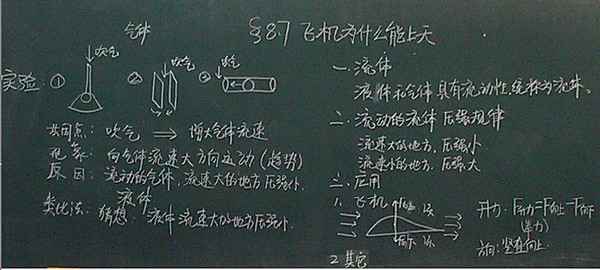 §8.7 飞机为什么能上天
气体
实验: ① ↓吹气 ② ↓吹气 ③ ↓吹气
共同点: 吹气 ⇒ 增大气体流速
现象: 向气体流速大方向运动(趋势)
原因: 流动的气体,流速大的地方压强小.
液体
类比法: 猜想: 液体流速大的地方压强小.
一.流体
液体和气体具有流动性,统称为流体。
二.流动的流体压强规律
流速大的地方,压强小
流速小的地方,压强大
三.应用
1.飞机
F向上
F向下
升力: F升力=F向上-F向下
方向: 竖直向上.
2.其它